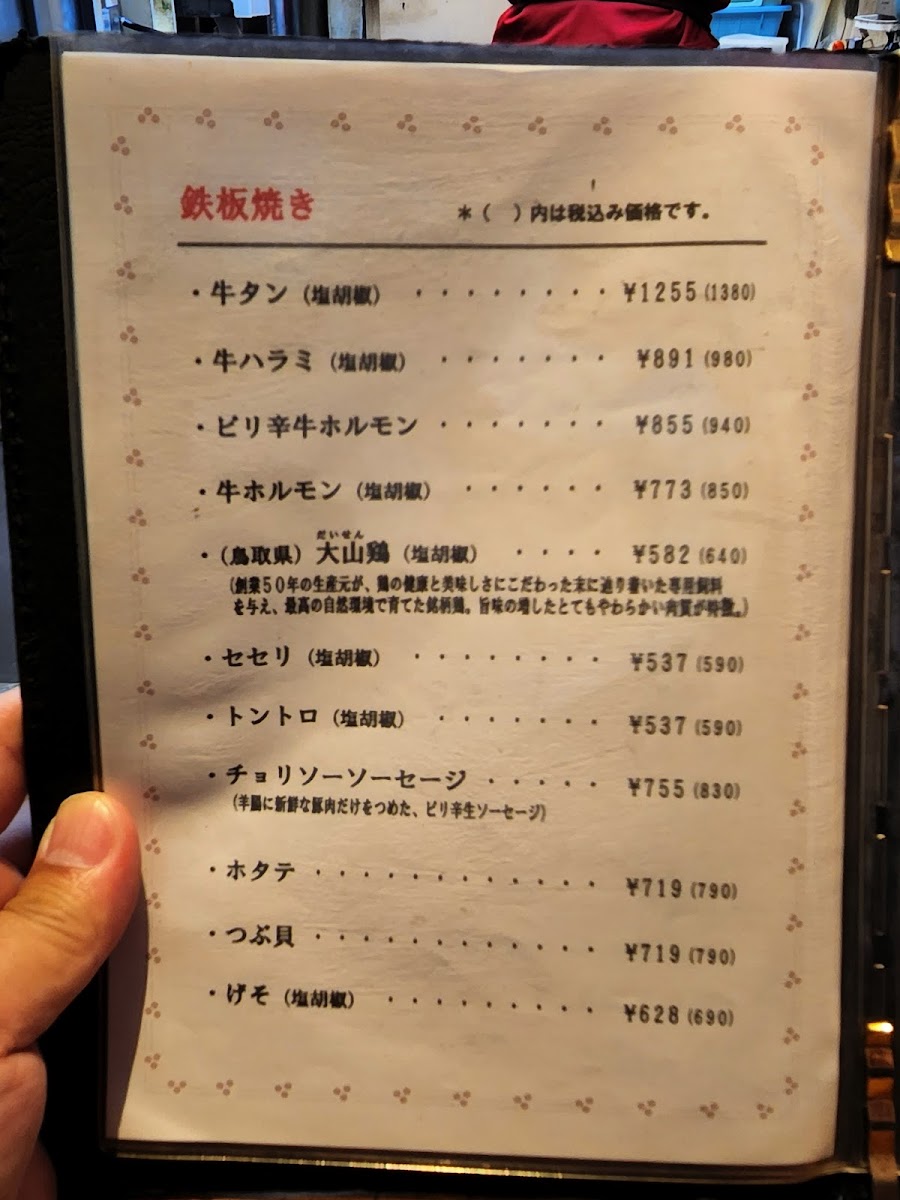 鉄板焼き ＊（　）内は税込み価格です。
・牛タン（塩胡椒）・・・・・・・・¥1255(1380)
・牛ハラミ（塩胡椒）・・・・・・・¥891(980)
・ピリ辛牛ホルモン・・・・・・・¥855(940)
・牛ホルモン（塩胡椒）・・・・・・¥773(850)
だいせん
・（鳥取県）大山鶏（塩胡椒）・・・・¥582(640)
（創業５０年の生産元が、鶏の健康と美味しさにこだわった末に辿り着いた専用飼料
を与え、最高の自然環境で育てた銘柄鶏。旨味の増したとてもやわらかい肉質が特徴。）
・セセリ（塩胡椒）・・・・・・・・¥537(590)
・トントロ（塩胡椒）・・・・・・・¥537(590)
・チョリソーソーセージ・・・・・¥755(830)
（羊腸に新鮮な豚肉だけをつめた、ピリ辛生ソーセージ）
・ホタテ・・・・・・・・・・・・¥719(790)
・つぶ貝・・・・・・・・・・・・¥719(790)
・げそ（塩胡椒）・・・・・・・・・¥628(690)